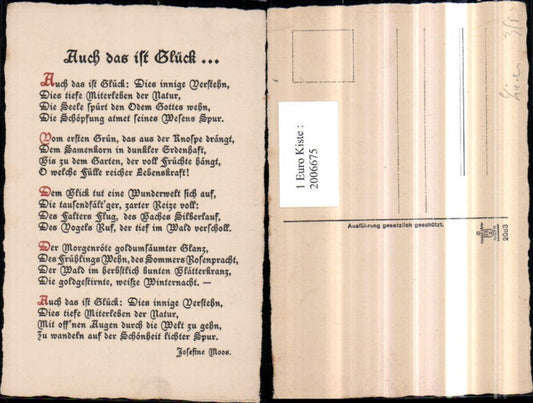 Auch das ist Glück ...
Auch das ist Glück: Dies innige Verstehn,
Dies tiefe Miterleben der Natur,
Die Seele spürt den Odem Gottes wehn,
Die Schöpfung atmet seines Wesens Spur.
Vom ersten Grün, das aus der Knospe drängt,
Dem Samenkorn in dunkler Erdenhaft,
Bis zu dem Garten, der voll Früchte hängt,
O welche Fülle reicher Lebenskraft!
Dem Blick tut eine Wunderwelt sich auf,
Die tausendfält'ger, zarter Reize voll:
Des Falters Flug, des Baches Silberlauf,
Des Vogels Ruf, der tief im Wald verscholl.
Der Morgenröte goldumsäumter Glanz,
Des Frühlings Wehn, des Sommers Rosenpracht,
Der Wald im herbstlich bunten Blätterkranz,
Die goldgestirnte, weiße Winternacht. —
Auch das ist Glück: Dies innige Verstehn,
Dies tiefe Miterleben der Natur,
Mit off'nen Augen durch die Welt zu gehn,
Zu wandeln auf der Schönheit lichter Spur.
Josefine Moos.
1 Euro Kiste :
2006675
Ausführung gesetzlich geschützt.